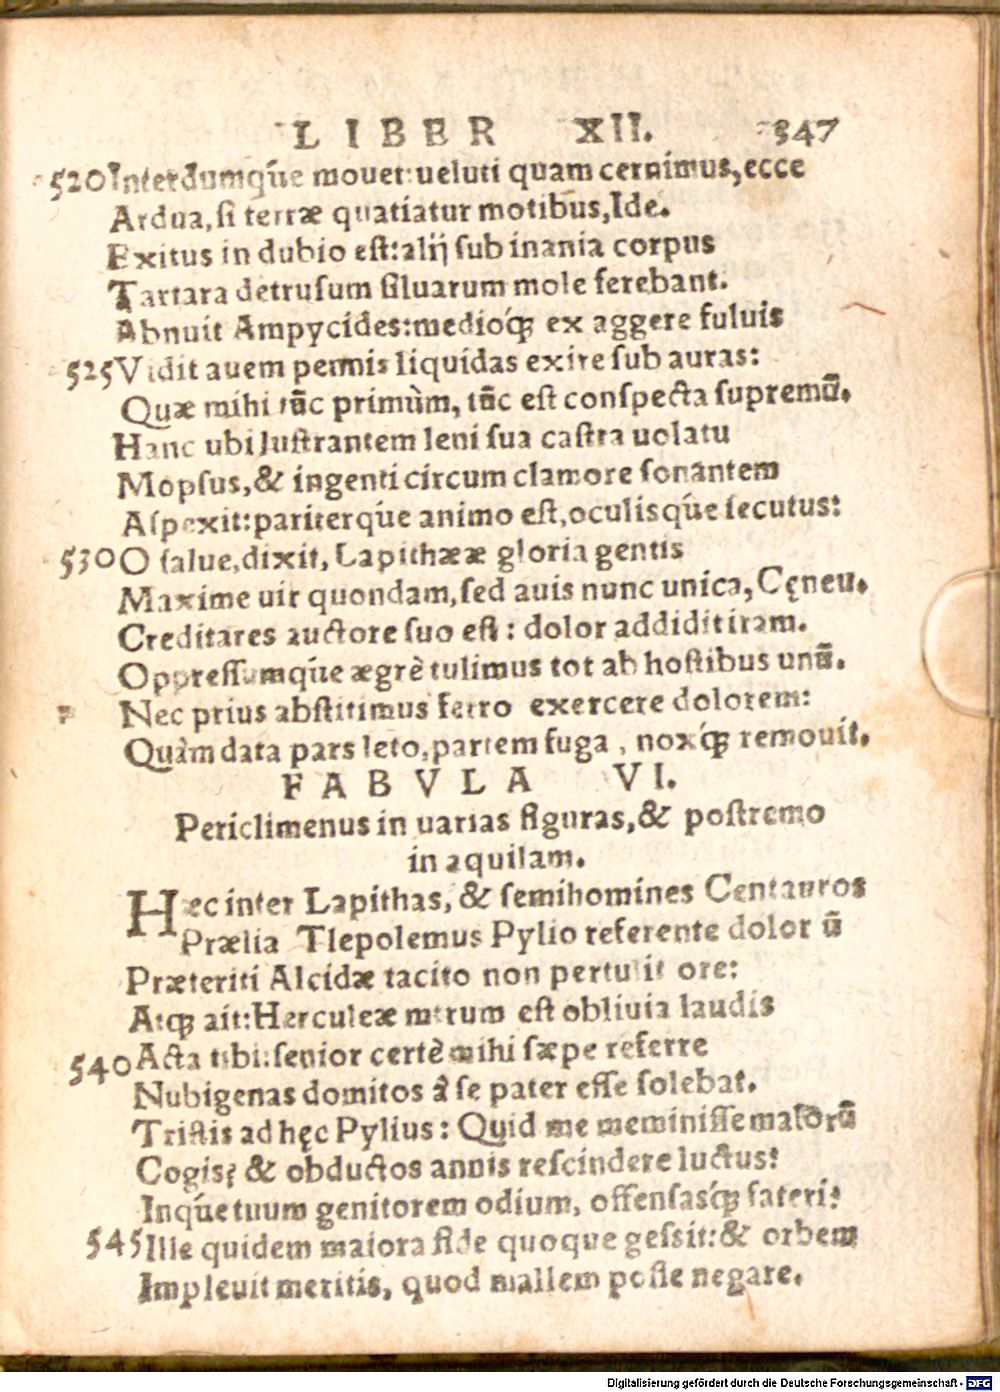 LIBER XII. 347
520 Interdumq́ue mouet: ueluti quam cernimus, ecce
Ardua, si terræ quatiatur motibus, Ide.
Exitus in dubio est: alij sub inania corpus
Tartara detrusum siluarum mole ferebant.
Abnuit Ampycides: medioq́; ex aggere fuluis
525 Vidit auem pennis liquidas exire sub auras:
Quæ mihi tũc primùm, tũc est conspecta supremũ.
Hanc ubi lustrantem leni sua castra uolatu
Mopsus, & ingenti circum clamore sonantem
Aspexit: pariterq́ue animo est, oculisq́ue secutus:
530 O salue, dixit, Lapithææ gloria gentis
Maxime uir quondam, sed auis nunc unica, Cęneu.
Credita res auctore suo est: dolor addidit iram.
Oppressumq́ue ægrè tulimus tot ab hostibus unũ.
Nec prius abstitimus ferro exercere dolorem:
Quàm data pars leto, partem fuga, noxq́; remouit.
FABVLA VI.
Periclimenus in uarias figuras, & postremo
in aquilam.
Hæc inter Lapithas, & semihomines Centauros
Prælia Tlepolemus Pylio referente dolorũ
Præteriti Alcidæ tacito non pertulit ore:
Atq; ait: Herculeæ mirum est obliuia laudis
540 Acta tibi: senior certè mihi sæpe referre
Nubigenas domitos à se pater esse solebat.
Tristis ad hęc Pylius: Quid me meminisse malorũ
Cogis? & obductos annis rescindere luctus?
Inq́ue tuum genitorem odium, offensasq́; fateri?
545 Ille quidem maiora fide quoque gessit: & orbem
Impleuit meritis, quod mallem posse negare.
Digitalisierung gefördert durch die Deutsche Forschungsgemeinschaft - DFG